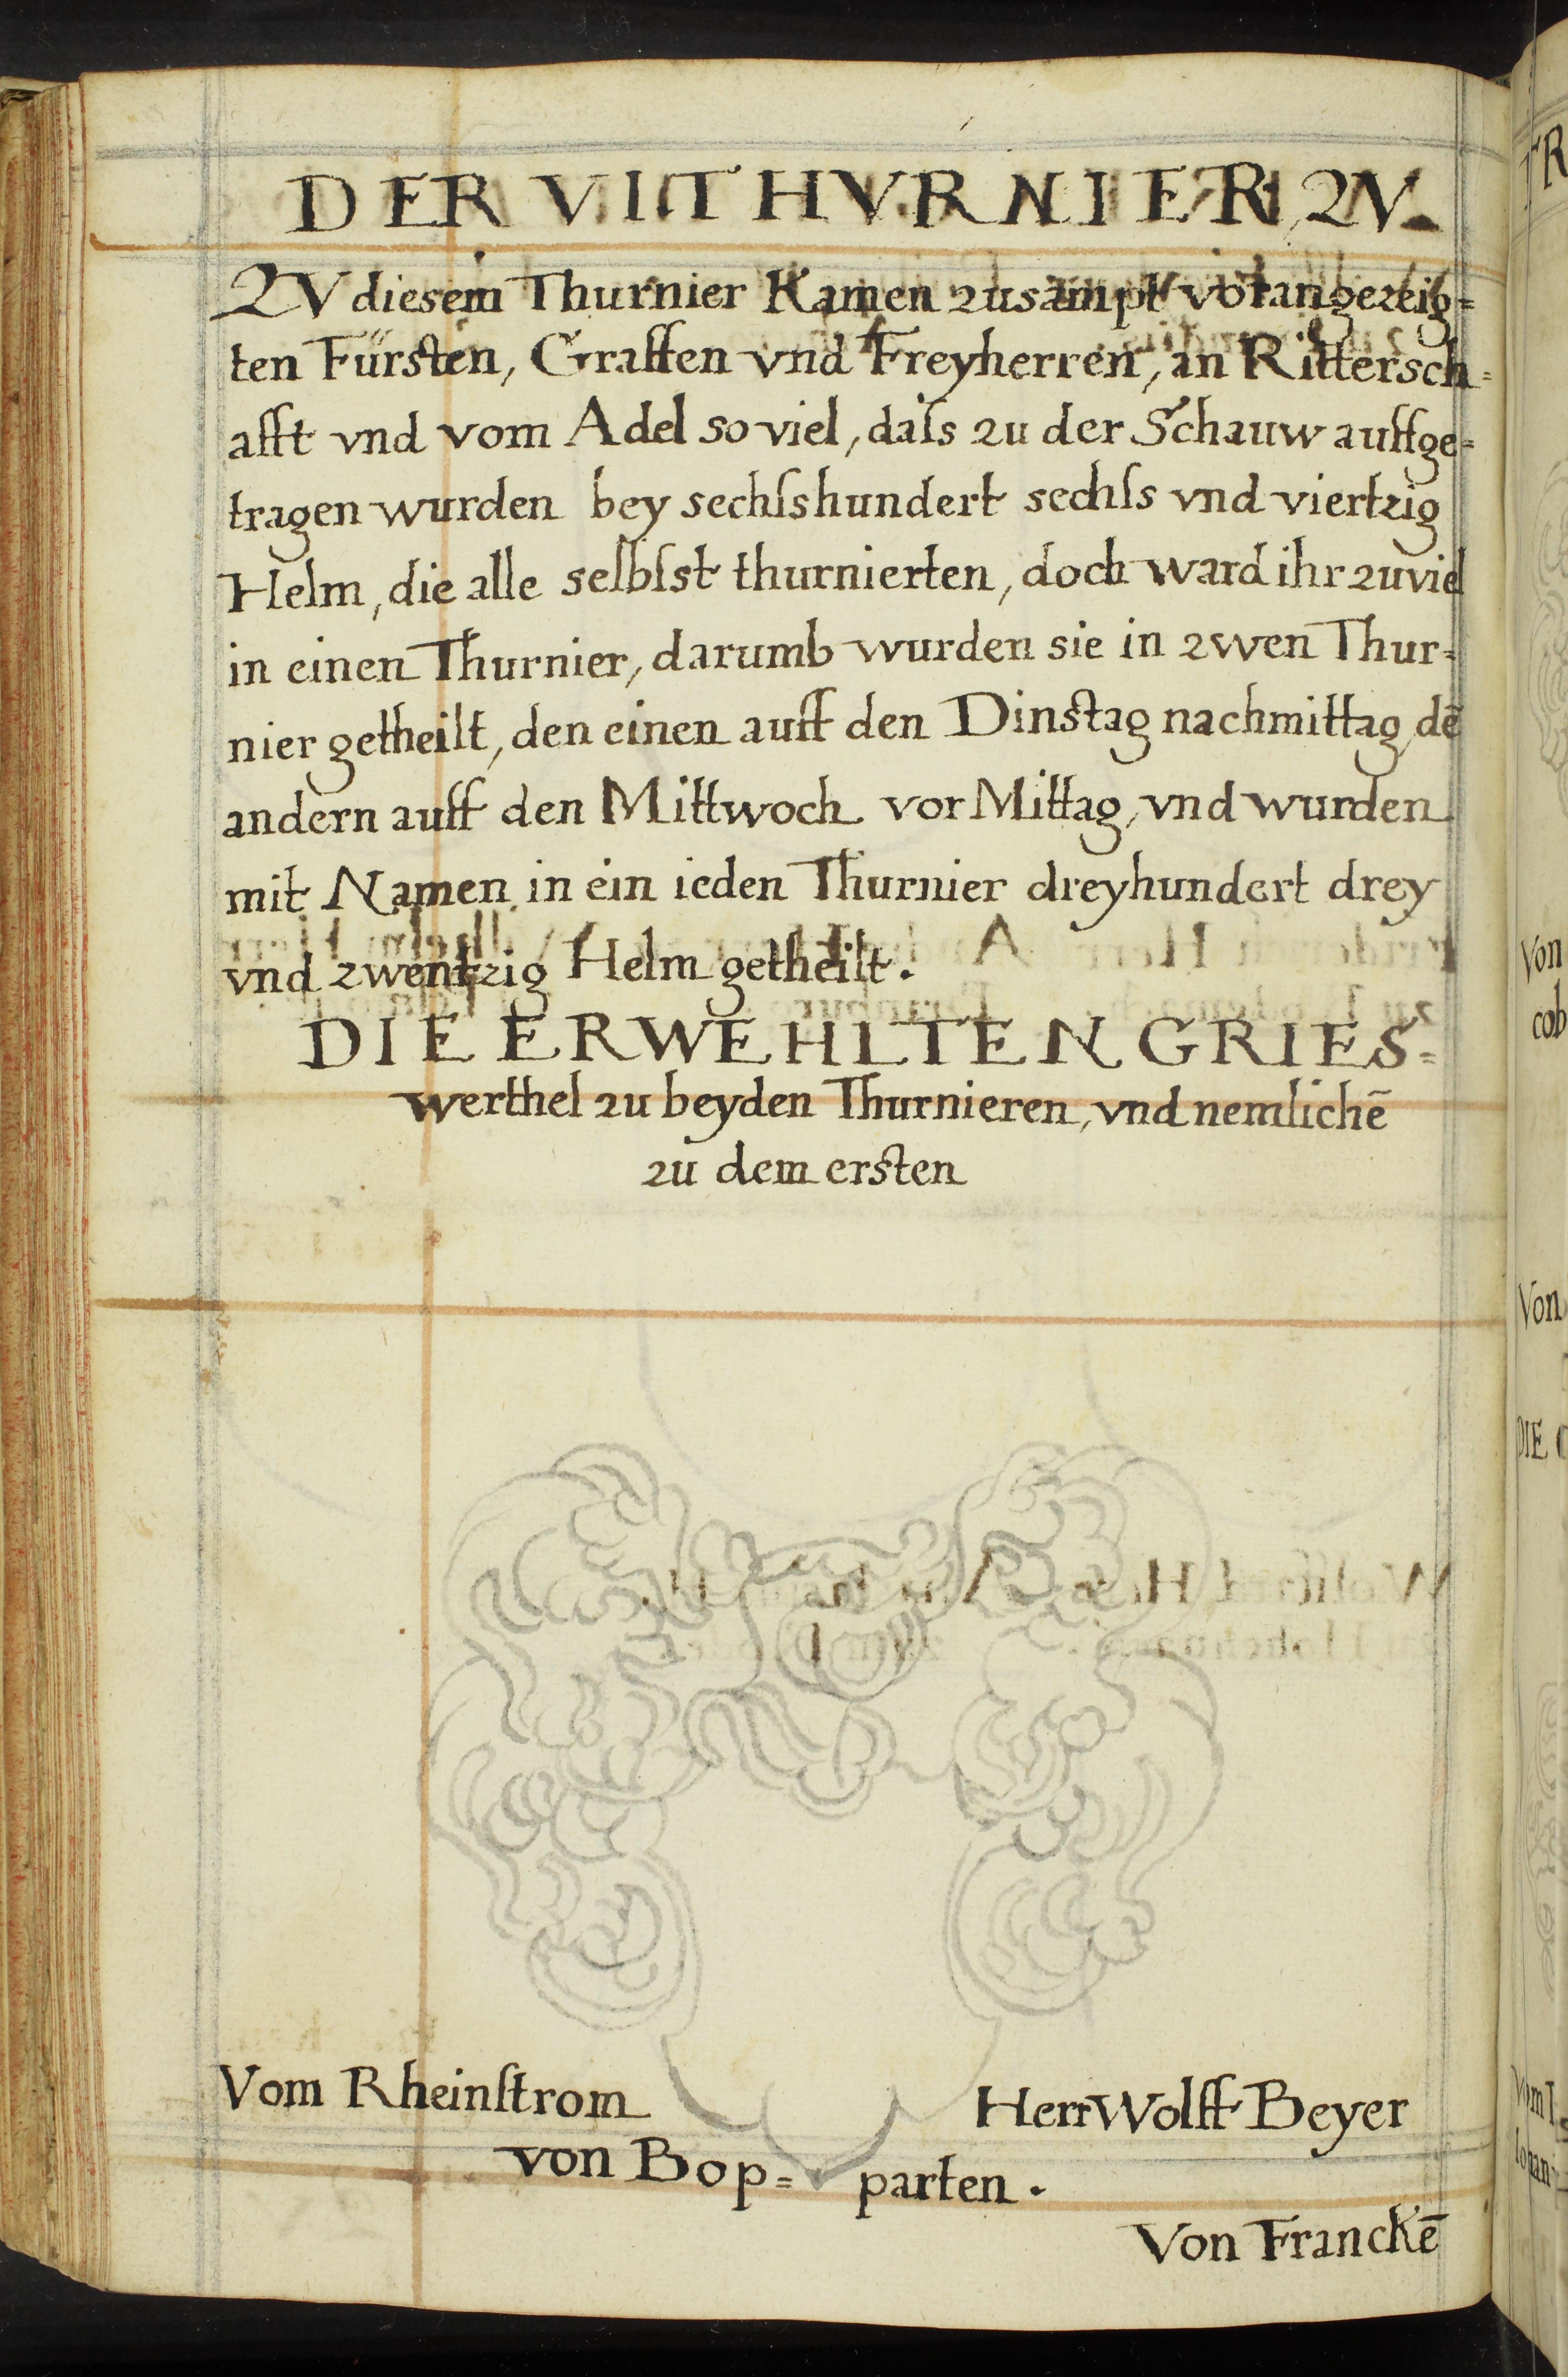 DER VII THVRNIER, ZV
ZV diesem Thurnier Kamen zusampt vorangezeig=
ten Fürsten, Graffen vnd Freyherren, an Rittersch=
afft vnd vom Adel so viel, daſs zu der Schauw auffge=
tragen wurden bey sechſshundert sechſs vnd viertzig
Helm, die alle selbſst thurnierten, doch ward ihr zuviel
in einen Thurnier, darumb wurden sie in zwen Thur=
nier getheilt, den einen auff den Dinstag nachmittag, dē
andern auff den Mittwoch vor Mittag, vnd wurden
mit Namen in ein ieden Thurnier dreyhundert drey
vnd zwentzig Helm getheilt.
DIE ERWEHLTEN GRIES=
werthel zu beyden Thurnieren, vnd nemlichē
zu dem ersten
Vom Rheinſtrom Herr Wolff Beyer
von Bop= parten.
Von Franckē
Von
cob
Von
DIE